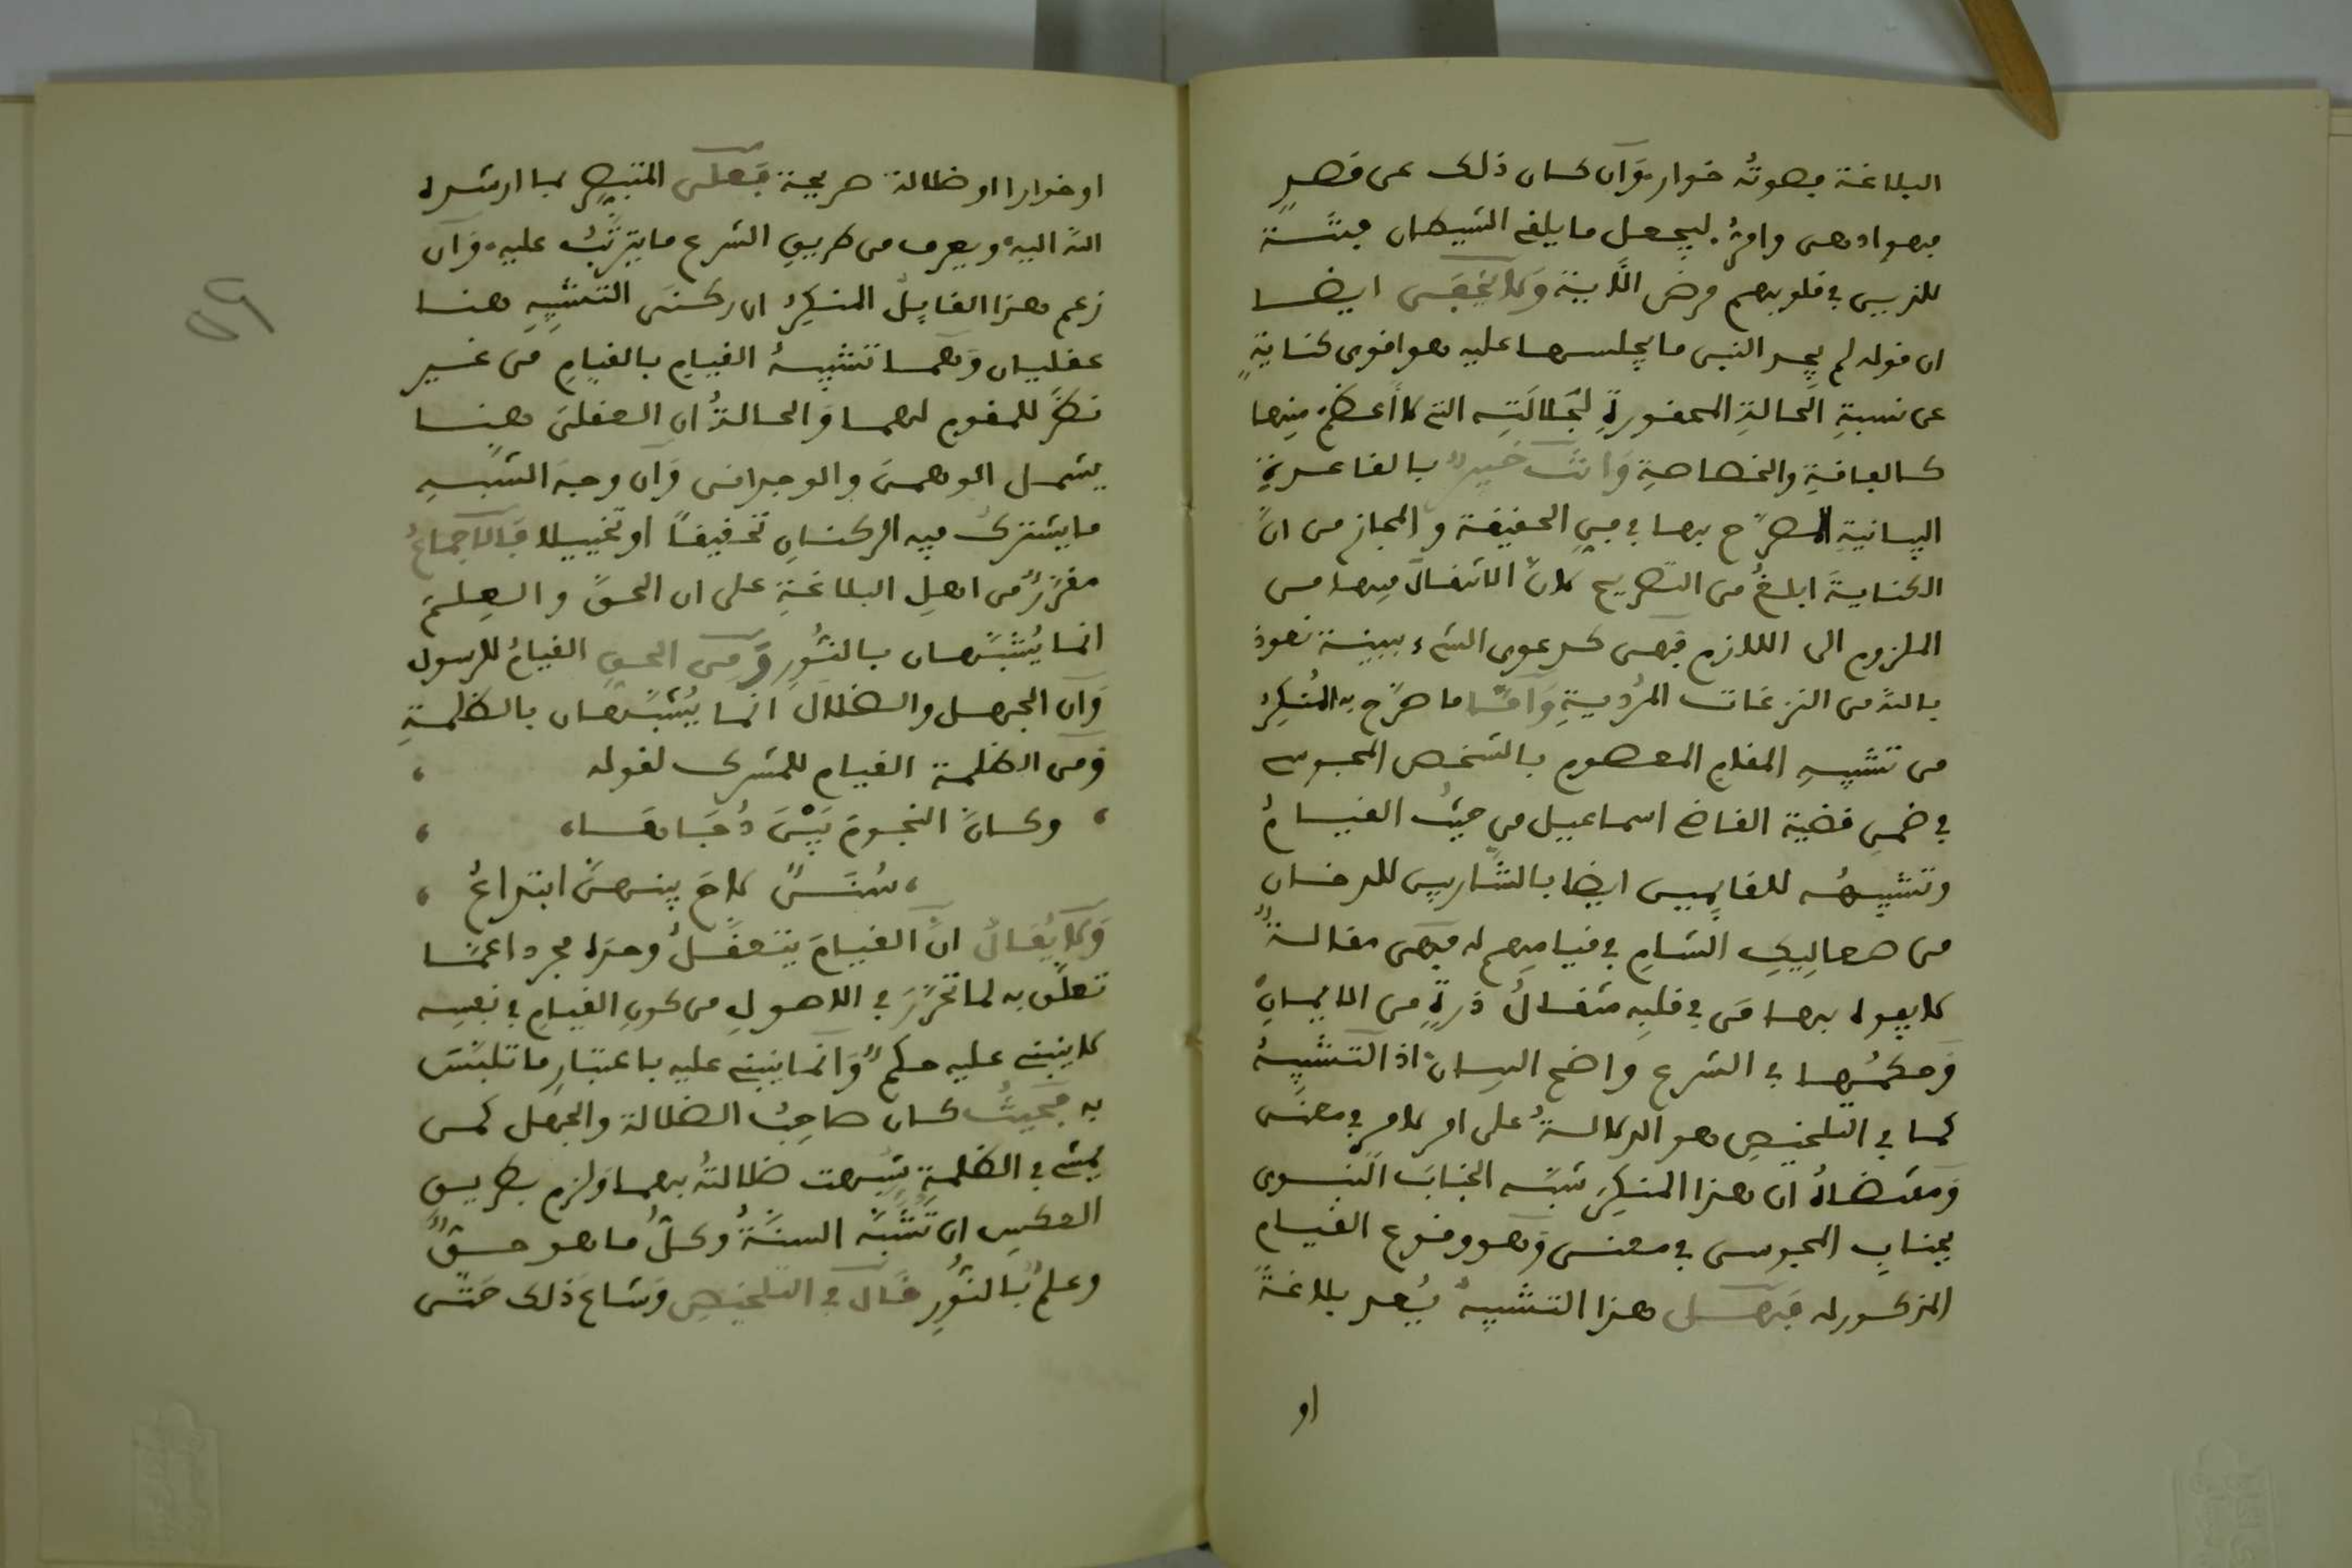 البلاغة فصوته خوار وَان كان ذلك عن قصدٍ
فهو ادهى وامرُّ ليجعل ما يلقى الشيطان فتنة
للذين في قلوبهم مرض الآية وَلا يخفى ايضا
ان قوله لم يجد النبي ما يجلسها عليه هو اقوى كناية
عن نسبةِ الحالةِ المحقورةِ لجَلالَتِه التي لا أعظمَ منها
كالفاقةِ والخصاصةِ وَانتَ خبيرٌ بالقاعدةِ
البيانيةِ المصرَّح بها في فنِّ الحقيقة والمجاز من انَّ
الكنايةَ ابلغُ من التصريح لانّ الانتقالَ فيها من
الملزوم الى اللازم فهى كدعوى الشيء ببينة نعوذ
بالله من النزغات المُرْديةِ وَامّا ما صرَّح به المُنكِرُ
من تشبيهِ المقامِ المعصومِ بالشخص المجوسي
في ضمنِ قضية القاضي اسماعيل من حيثُ القيامُ
وتشبيهُه للقائمين ايضا بالشَّاربين للدخان
من صعاليكِ الشامِ في قيامهم له فهى مقالةٌ
لا يفوه بها من في قلبِه مثقالُ ذرةٍ من الايمانِ
وَحكمُها في الشرع واضح البيان اذ التشبيهُ
كما في التلخيصِ هو الدلالةُ على امر لامر في معنى
وَمقتضاهُ ان هذا المنكِرَ شبَّه الجنابَ النبوى
بجنابِ المجوسى في معنى وَهو وقوع القيام
المذكور له فهل هذا التشبيهُ يُعد بلاغةً
او
او خوارا او ضلالة صريحة فعلى المتبصِّر بما ارشده
اللهُ اليه ويعرف من طريق الشرع ما يترتَّبُ عليه وَان
زعم هذا القايلُ المنكِرُ ان ركنَى التشبيهِ هنا
عقليان وَهما تشبيهُ القيامِ بالقيامِ من غير
نظرٍ للمقوم لهما وَالحالةُ ان العقلىَ هنا
يشمل الوهمىَ والوجدانى وَان وجهَ الشبهِ
ما يشتركُ فيه الركنانِ تحقيقًا او تخييلا فَالاجماعُ
مقرَّرٌ من اهلِ البلاغةِ على ان الحقَّ والعِلمَ
انما يُشبَّهان بالنُّورِ وَمن الحقِ القيامُ للرسول
وَان الجهل والضلال انما يُشبَّهان بالظلمةِ
وَمن الظلمة القيام للمشرك لقوله
وكانَّ النجومَ بَيْنَ دُجَاهَا
سُنَنٌ لاحَ بينهنَّ ابتداعُ
وَلا يُقالُ انَّ القيامَ يتعقَّلُ وحدَه مجردا عمّا
تعلّق به لما تحرَّرَ في الاصولِ من كونِ القيامِ في نفسِه
لا ينبني عليه حكمٌ وَانما ينبني عليه باعتبارِ ما تلبَّسَ
به فحيثُ كان صاحِبُ الضلالة والجهل كمن
يمشي في الظلمةِ شُبهت ضلالتُه بهما وَلزم بطريقِ
العكسِ ان تُشَبَّه السنَّةُ وكلُّ ما هو حقٌّ
وعلمٌ بالنُّورِ قَال في التلخيص وَشاعَ ذلك حَتّى